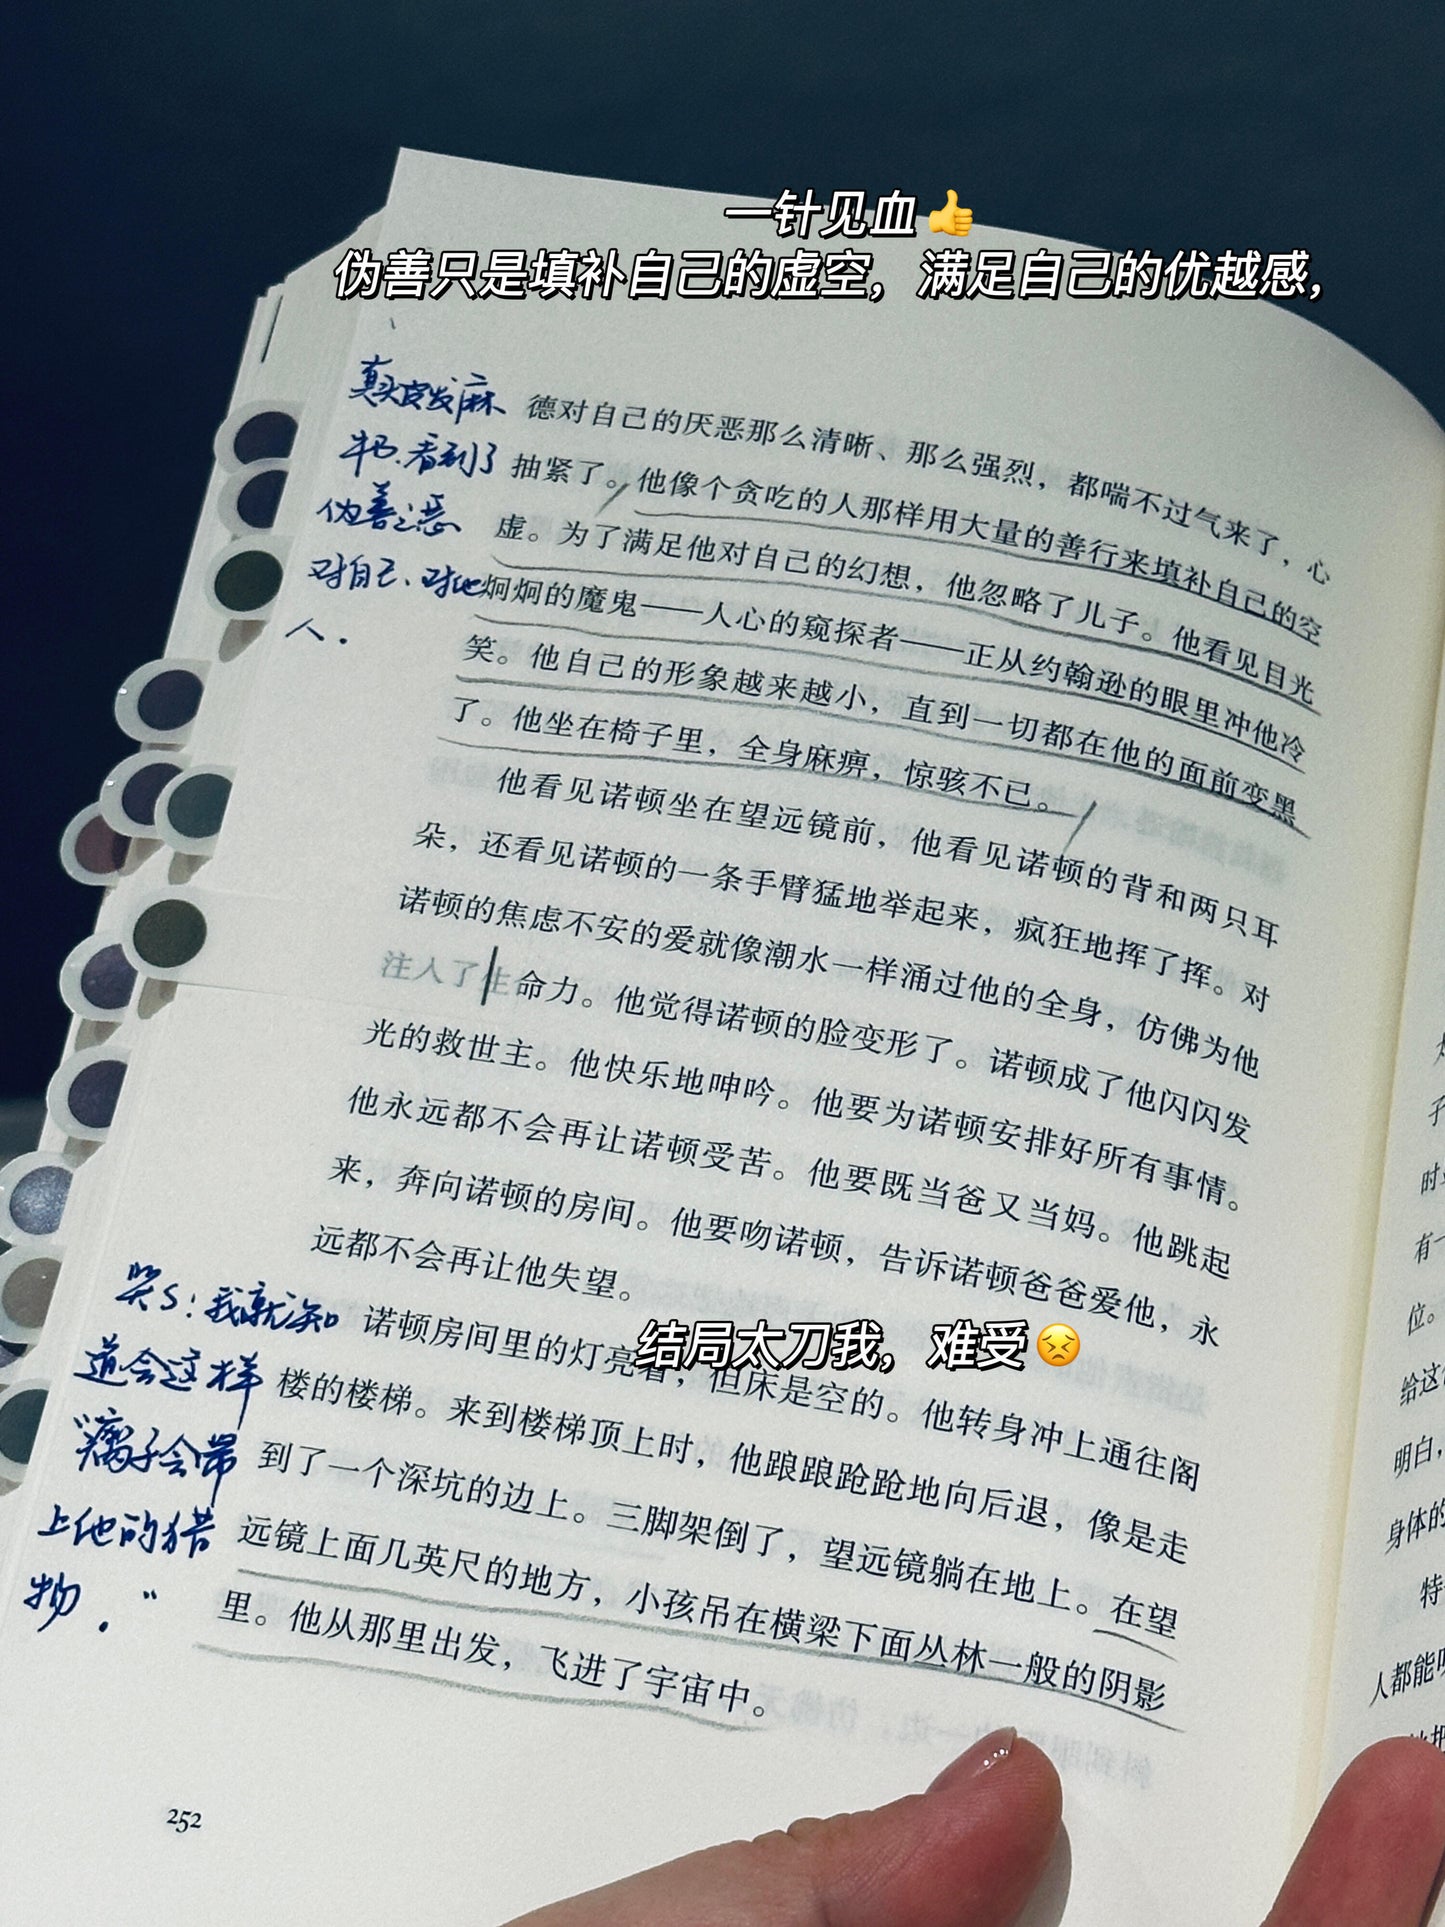 一针见血👍
伪善只是填补自己的虚空，满足自己的优越感，
真头皮发麻
牛B.看到了
伪善之恶
对自己、对他
人.
德对自己的厌恶那么清晰、那么强烈，都喘不过气来了，心
抽紧了。他像个贪吃的人那样用大量的善行来填补自己的空
虚。为了满足他对自己的幻想，他忽略了儿子。他看见目光
炯炯的魔鬼——人心的窥探者——正从约翰逊的眼里冲他冷
笑。他自己的形象越来越小，直到一切都在他的面前变黑
了。他坐在椅子里，全身麻痹，惊骇不已。
他看见诺顿坐在望远镜前，他看见诺顿的背和两只耳
朵，还看见诺顿的一条手臂猛地举起来，疯狂地挥了挥。对
诺顿的焦虑不安的爱就像潮水一样涌过他的全身，仿佛为他
注入了生命力。他觉得诺顿的脸变形了。诺顿成了他闪闪发
光的救世主。他快乐地呻吟。他要为诺顿安排好所有事情。
他永远都不会再让诺顿受苦。他要既当爸又当妈。他跳起
来，奔向诺顿的房间。他要吻诺顿，告诉诺顿爸爸爱他，永
远都不会再让他失望。
结局太刀我，难受😣
诺顿房间里的灯亮着，但床是空的。他转身冲上通往阁
楼的楼梯。来到楼梯顶上时，他踉踉跄跄地向后退，像是走
到了一个深坑的边上。三脚架倒了，望远镜躺在地上。在望
远镜上面几英尺的地方，小孩吊在横梁下面丛林一般的阴影
里。他从那里出发，飞进了宇宙中。
哭s：我就知
道会这样
"瘸子会带
上他的猎
物."
252
时
有一
位。
给这
明白，
身体的
特
人都能